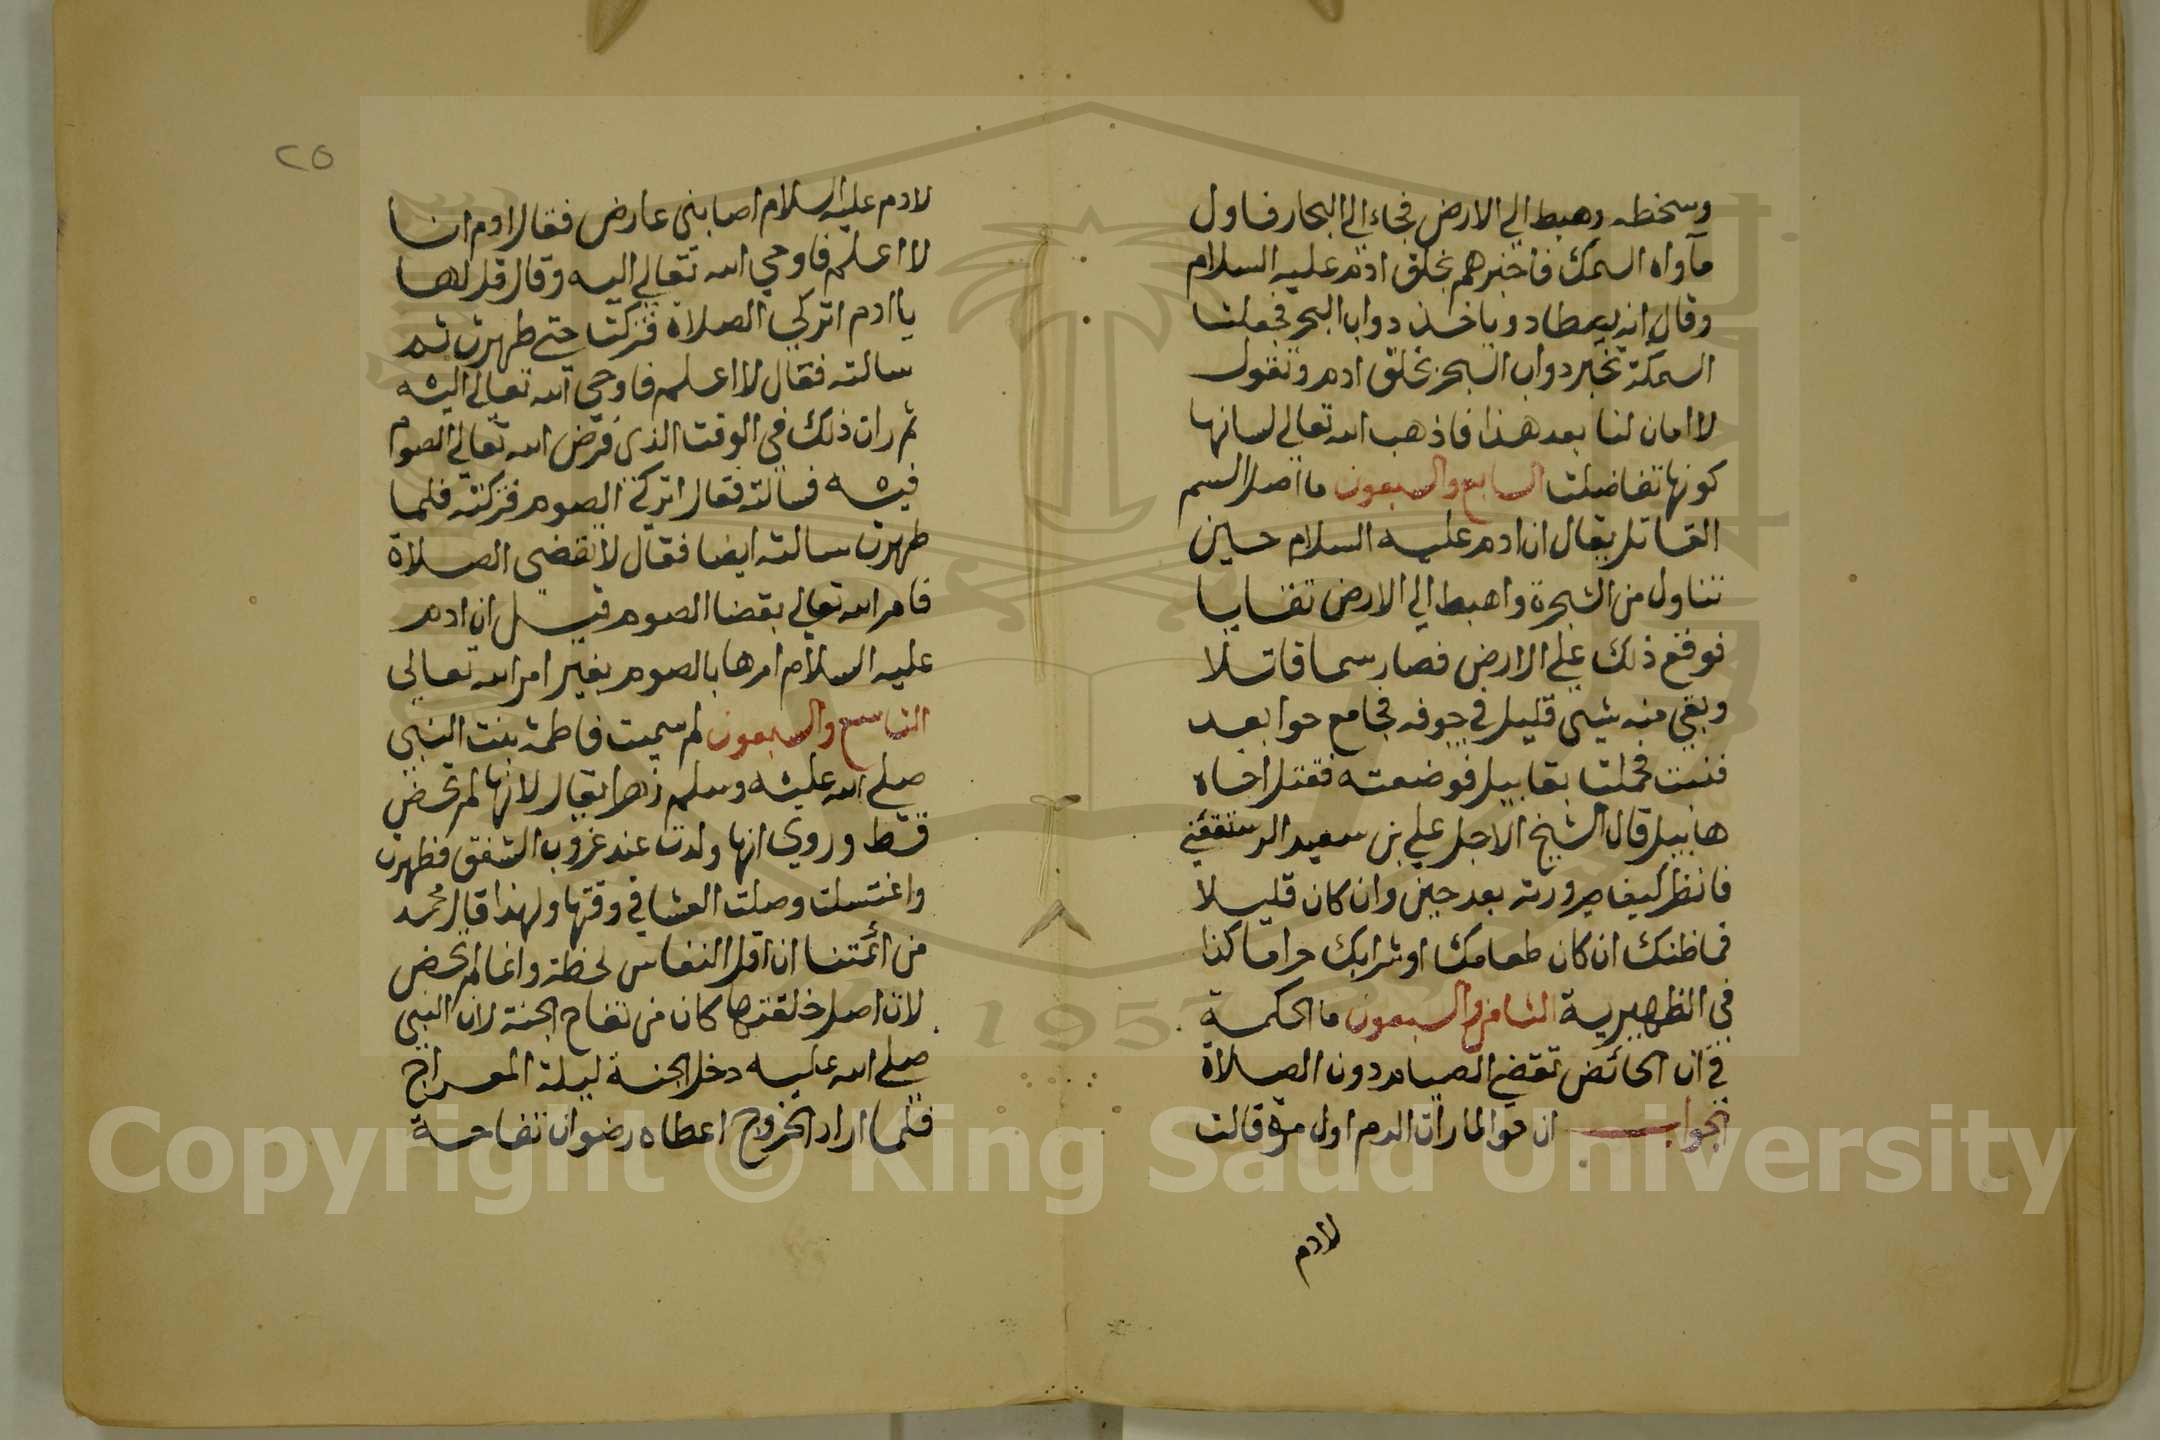 وسخطه وهبط الي الارض فجاء الي البحار فاول
مآواه السمك فاخبرهم بخلق ادم عليه السلام
وقال انه يصطاد وياخذ دواب البحر فجعلت
السمكة تخبر دواب البحر بخلق ادم وتقول
لا امان لنا بعد هذا فاذهب الله تعالي لسانها
كونها تفاضلت السابع والسبعون ما اصل السم
القاتل يقال ان ادم عليه السلام حين
تناول من الشجرة واهبط الي الارض تقايا
فوقع ذلك علي الارض فصار سما قاتلا
وبقي منه شيء قليل في جوفه فجامع حوا بعد
فنبت فحملت بقابيل فوضعته فقتل اخاه
هابيل قال الشيخ الاجل علي بن سعيد الرستغفني
فانظر كيف ضرورته بعد حين وان كان قليلا
فما ظنك ان كان طعامك او شرابك حراما كذا
في الظهيرية الثامن والسبعون ما الحكمة
في ان الحائض تقضي الصيام دون الصلاة
الجواب ان حوا لما رات الدم اول مرة قالت
لادم
٢٥
لادم عليه السلام اصابني عارض فقال ادم انا
لا اعلم فاوحي الله تعالي اليه وقال قل لها
يا ادم اتركي الصلاة فتركتا حتي طهرت ثم
سالته فقال لا اعلم فاوحي الله تعالي اليه
ثم رات ذلك في الوقت الذي فرض الله تعالي الصوم
فيه فسالته فقال اتركي الصوم فتركته فلما
طهرت سالته ايضا فقال لا تقضي الصلاة
فامر الله تعالي بقضا الصوم قيل ان ادم
عليه السلام امرها بالصوم بغير امر الله تعالي
التاسع والسبعون لم سميت فاطمة بنت النبي
صلي الله عليه وسلم زهرا يقال لانها لم تحض
قط وروي انها ولدت عند غروب الشفق فطهرت
واغتسلت وصلت العشا في وقتها ولهذا قال محمد
من ائمتنا ان اقل النفاس لحظة وانما لم تحض
لان اصل خلقتها كان من تفاح الجنة لان النبي
صلي الله عليه دخل الجنة ليلة المعراج
فلما اراد الخروج اعطاه رضوان تفاحة
1957
Copyright © King Saud University